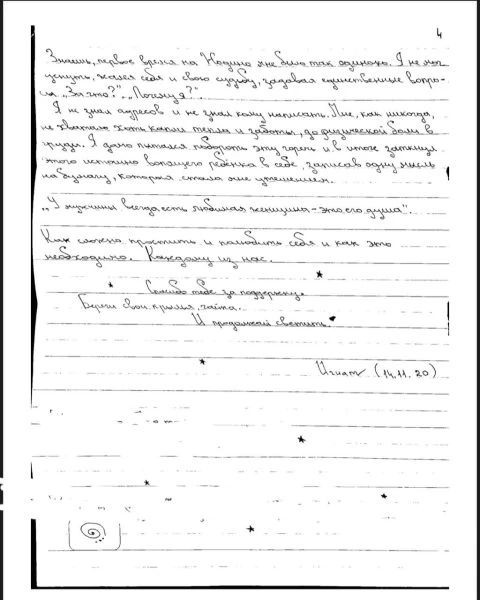 4
Знаешь, первое время на Нодино мне было так одиноко. Я не мог
уснуть, жалел себя и свою судьбу, задавая единственные вопро-
сы „За что?" „Почему я?".
Я не знал адресов и не знал кому написать. Мне, как никогда,
не хватало хоть капли тепла и заботы, до физической боли в
груди. Я долго пытался побороть эту горечь и в итоге заткнул
этого истошно вопящего ребенка в себе, записав одну мысль
на бумагу, которая стала мне утешением.
„У мужчины всегда есть любимая женщина - это его душа".
Как сложно простить и полюбить себя и как это
необходимо. Каждому из нас.
Спасибо тебе за поддержку.
Береги свои крылья, чайка.
И продолжай светить.
Игнат (14.11.20)